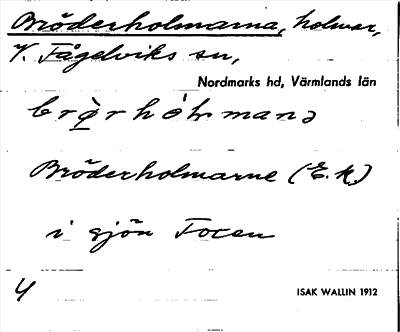 Bröderholmarna, holmar,
V. Fågelviks sn,
Nordmarks hd, Värmlands län
Bröderholmarne (E.K.)
i sjön Foxen
4
ISAK WALLIN 1912